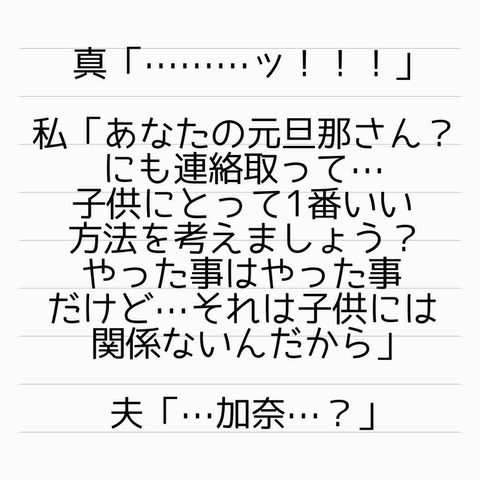 真「………ッ！！！」
私「あなたの元旦那さん？
にも連絡取って…
子供にとって1番いい
方法を考えましょう？
やった事はやった事
だけど…それは子供には
関係ないんだから」
夫「…加奈…？」